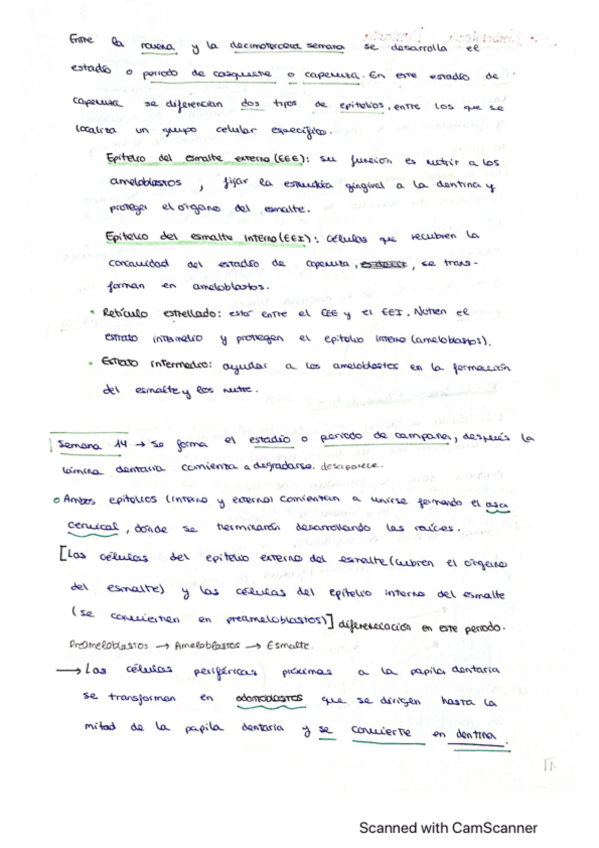 Entre la novena y la decimotercera semana se desarrolla el
estadío o periodo de casquete o caperuza. En este estadío de
caperuza se diferencian dos tipos de epitelios, entre los que se
localiza un grupo celular específico.
Epitelio del esmalte externo (EEE): su función es nutrir a los
ameloblastos, fijar la estructura gingival a la dentina y
proteger el órgano del esmalte.
Epitelio del esmalte interno (EEI): células que recubren la
concavidad del estadío de caperuza, se trans-
forman en ameloblastos.
• Retículo estrellado: estar entre el EEE y el EEI. Nutren el
estrato intermedio y protegen el epitelio interno (ameloblastos).
• Estrato intermedio: ayudar a los ameloblastos en la formación
del esmalte y los nutre.
Semana 14 → Se forma el estadío o periodo de campana, después la
lámina dentaria comienza a degradarse. desaparece.
Ambos epitelios (interno y externo) comienzan a unirse formando el asa
cervical, donde se terminarán desarrollando las raíces.
[Las células del epitelio externo del esmalte (cubren el órgano
del esmalte) y las células del epitelio interno del esmalte
(se convierten en preameloblastos)] diferenciación en este periodo.
Preameloblastos → Ameloblastos → Esmalte.
→ Las células periféricas próximas a la papila dentaria
se transforman en odontoblastos que se dirigen hasta la
mitad de la papila dentaria y se convierte en dentina.
Scanned with CamScanner